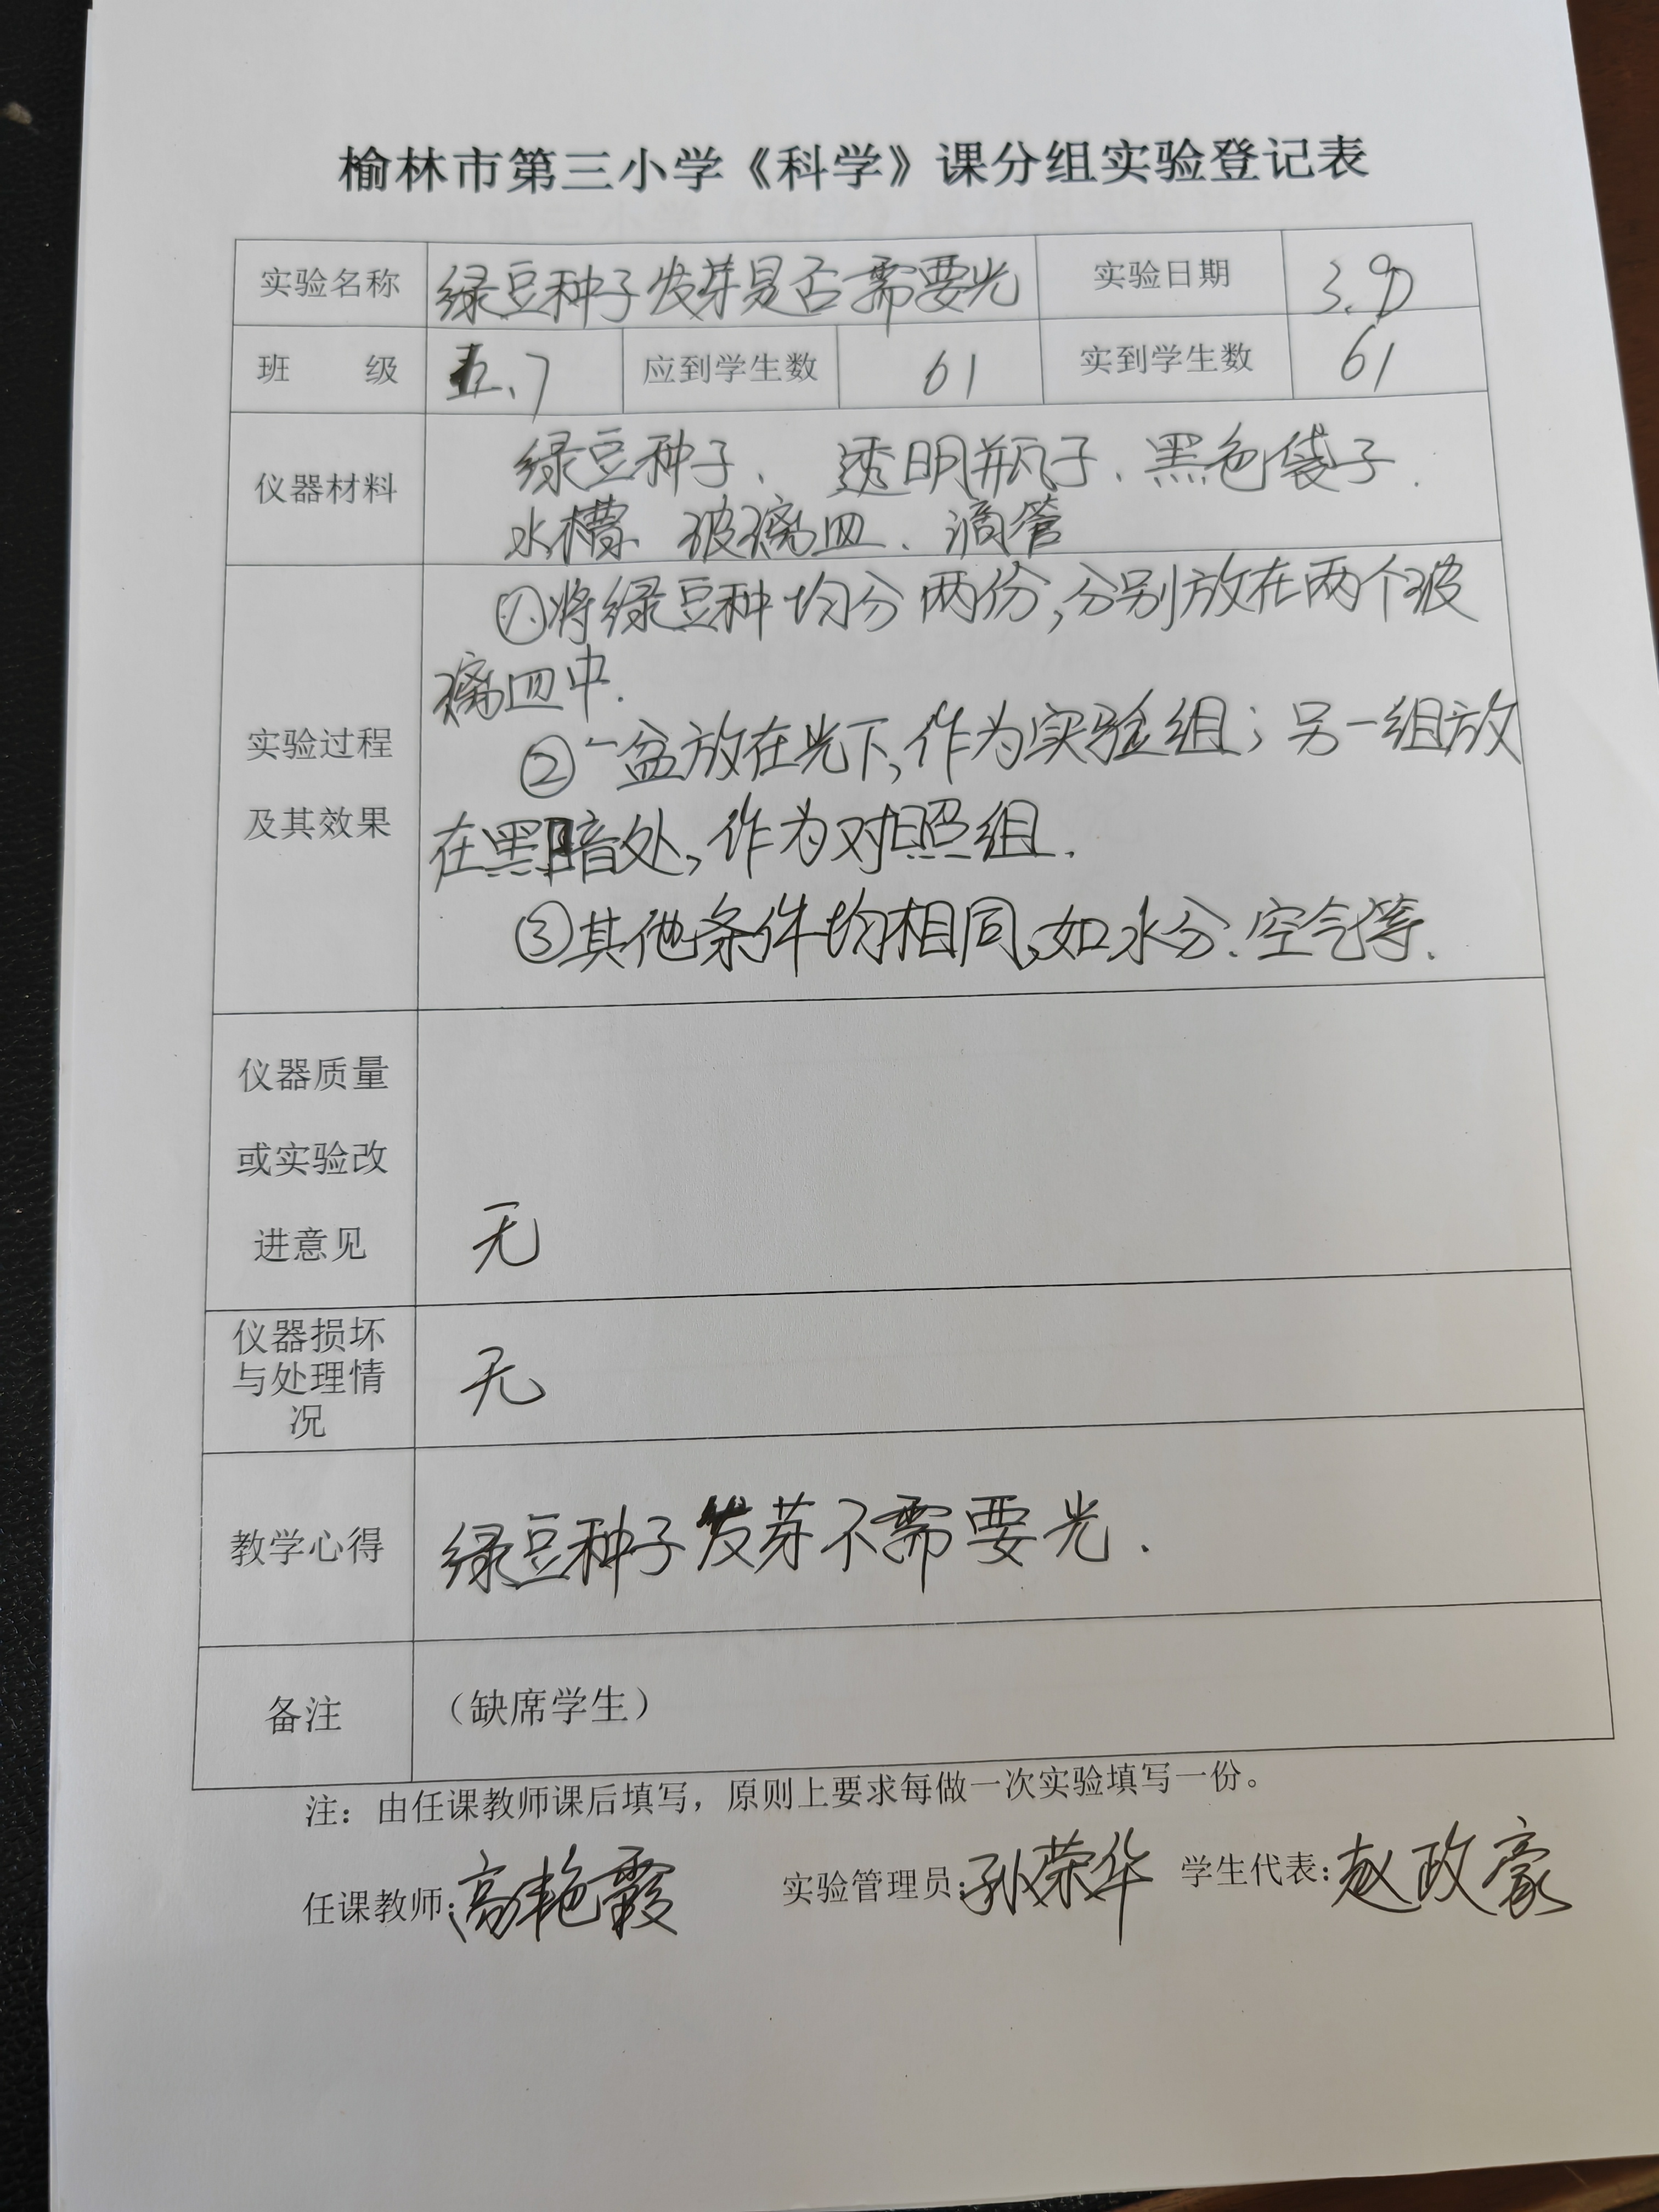 榆林市第三小学《科学》课分组实验登记表
实验名称 绿豆种子发芽是否需要光 实验日期
班 级 五.7 应到学生数 61 实到学生数 61
仪器材料 绿豆种子、 透明瓶子、黑色袋子.
水槽、玻璃皿、滴管
实验过程及其效果
①将绿豆种均分两份,分别放在两个玻
璃皿中.
②一盆放在光下,作为实验组;另一组放
在黑暗处,作为对照组.
③其他条件均相同,如水分、空气等.
仪器质量
或实验改
进意见 无
仪器损坏
与处理情
况 无
教学心得 绿豆种子发芽不需要光.
备注 (缺席学生)
注：由任课教师课后填写，原则上要求每做一次实验填写一份。
任课教师:高艳霞 实验管理员:孙荣华 学生代表:赵政豪